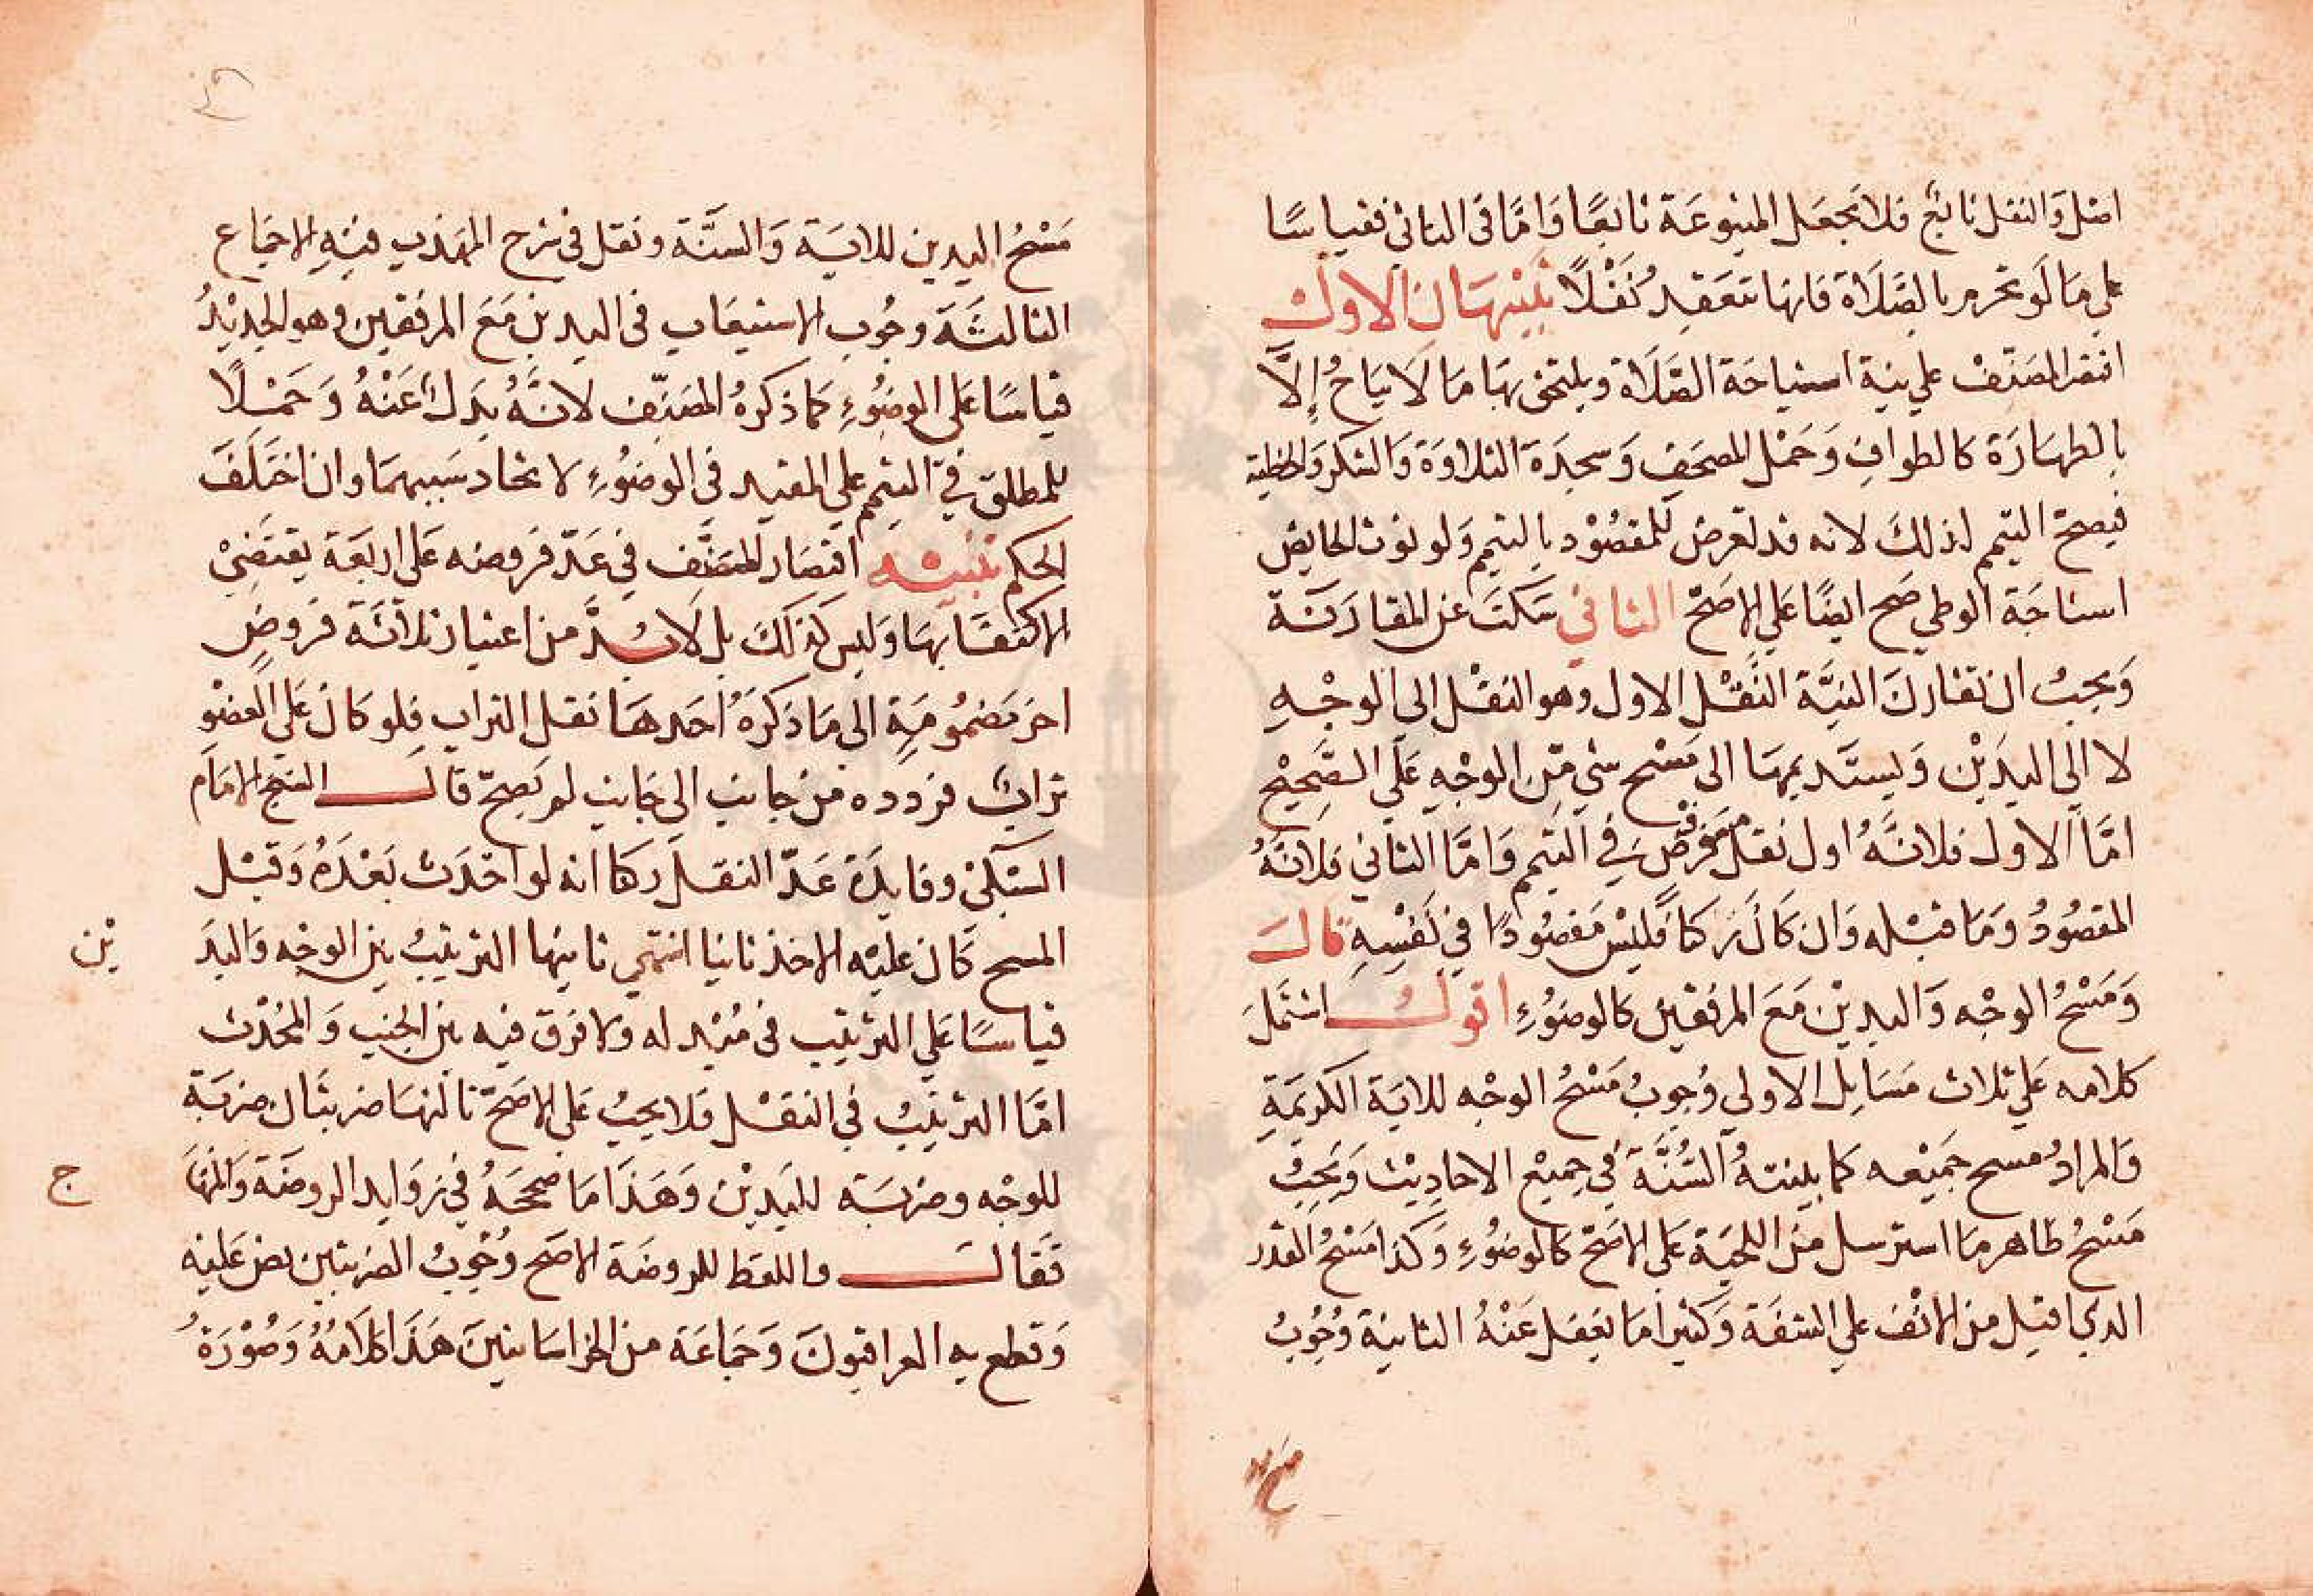 اصل والنفل تابع فلا تجعل المتبوعة تابعًا وَامَّا في الثاني فقياسًا
علي مَا لَو تحرم بالصَّلَاة فانها تنعَقِد نَفْلًا تَنْبِيهَان الاول
اقتصر المصَنِّفْ علي نية استباحَة الصَّلَاة ويلتحق بهَا مَا لَا يَبَاحُ إلَّا
بالطهَارَة كالطوافِ وَحَمْل المصحَفِ وَسجدَة التلاوَة وَالشكر وَالخطبة
فيصحّ التيمم لذلكَ لانه قد تعَرض للمقصُوْد بالتيمم وَلو نوت الحَايض
استباحَة الوطي صَح ايضًا عَلي الاصَحّ الثاني سَكتَ عن المقارَنَة
وَيجبُ ان تقارنَ النيَّة النَّقْل الاول وهو النقْل الى الوجْهِ
لا الي اليدَيْن وَيستَديمهَا الى مَسْح شي مّن الوجْهِ عَلَي الصَّحِيْحِ
امَّا الاول فلانَّهُ اول نقل مفروض في التيمم وَامَّا الثاني فلانَّهُ
المقصُودُ وَمَا قبْله وَان كَانَ رَكنا فَليْس مَقصُودًا في نَفْسِهِ قَالَ
وَمَسْحُ الوجْه وَاليدين مَعَ المرفقين كالوضوُءِ اقولُ اشتملَ
كلامه عَلي ثلاث مَسَايِل الاولي وُجوبُ مَسْحُ الوجْه للايَة الكريَمَةِ
وَالمرادُ مسح جَميْعه كما بينتهُ السُّنَّةَ في جميْع الاحاديْث وَيَجِبُ
مَسْحُ ظاهر مَا استرسل من اللحيَة عَلى الاصَحّ كالوضُوُءِ وَكذا مَسْحُ القدر
الذي اقبل من الانْف علي الشفَة وَكثيرا مَا يغفل عَنْهُ الثانية وُجُوبُ
مَسْحُ اليدين للايَة وَالسنَّة ونقل في شرح المهَذب فيْهِ الاجمَاع
الثالثَة وجُوب الاستيعَاب في اليدين مَعَ المرفقين وهو الجديْدُ
قياسًا عَلى الوضُوُءِ كمَا ذكرهُ المصَنّف لانَّهُ بَدلٌ عَنْهُ وَحَمْلًا
للمطلق في التيمم علي المقيد في الوضُوُءِ لاتحاد سَببهمَا وان اختَلَفَ
الحكم تنبيْه اقتصَار المصَنَّف في عَدّ فرُوضه عَلى اربَعَة يقتَضيْ
الاكتفَا بهَا وَليس كذلكَ بل لَا بُدَّ من اعتبار ثلاثَة فرُوضٍ
اخر مَضمُومَةٍ الى مَا ذكرَهُ احَدهَا نقل التراب فلو كانَ عَلي العضْو
ترابٌ فردده من جانبٍ الى جَانبٍ لم يَصِحّ قالَ الشيخ الامَام
السّبكيّ وفايدَة عَدّ النقلَ ركنا انه لو احدَث بَعْدَهُ وَقَبْل
المسح كَان عليْه الاخذ ثانيا انتهَي ثانيها الترتيبُ بين الوجْه وَاليدَ
يْن
قياسًا عَلي الترتيب في مُبْدَله ولا فرق فيه بين الجنب وَالمحُدْث
امَّا الترتيبُ في النقْل فلا يجبُ عَلى الاصَحّ ثالثهَا ضربتَان ضربَة
للوجْه وضربَة لليَديْن وَهَذا مَا صَححَهُ في زوَايد الروضَة وَالمنهَا
ج
فقالَ واللفظ للروضَة الاصَح وُجُوبُ الضربتين نص عَليْه
وَقطع به العراقيونَ وَجمَاعَة من الخراسَانيينَ هَذا كلَامُهُ وَصُوْرَة